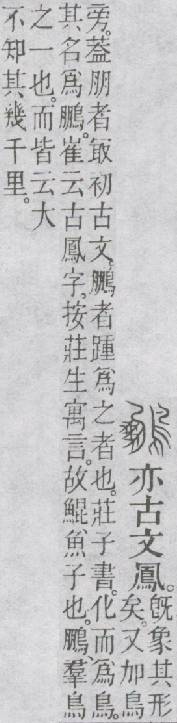 鵬亦古文鳳。旣象其形
矣。又加鳥
旁。葢朋者冣初古文。鵬者踵爲之者也。莊子書。化而爲鳥。
其名爲鵬。崔云古鳳字。按莊生寓言。故鯤魚子也。鵬羣鳥
之一也。而皆云大
不知其幾千里。